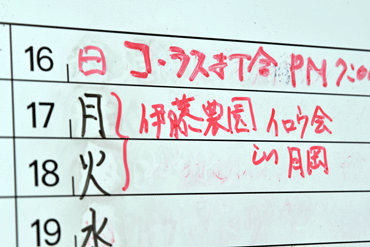 16 日 コ・ラス 会 PM 7:00
17 月 伊藤農園 イロウ会
18 火 in 月岡
19 水